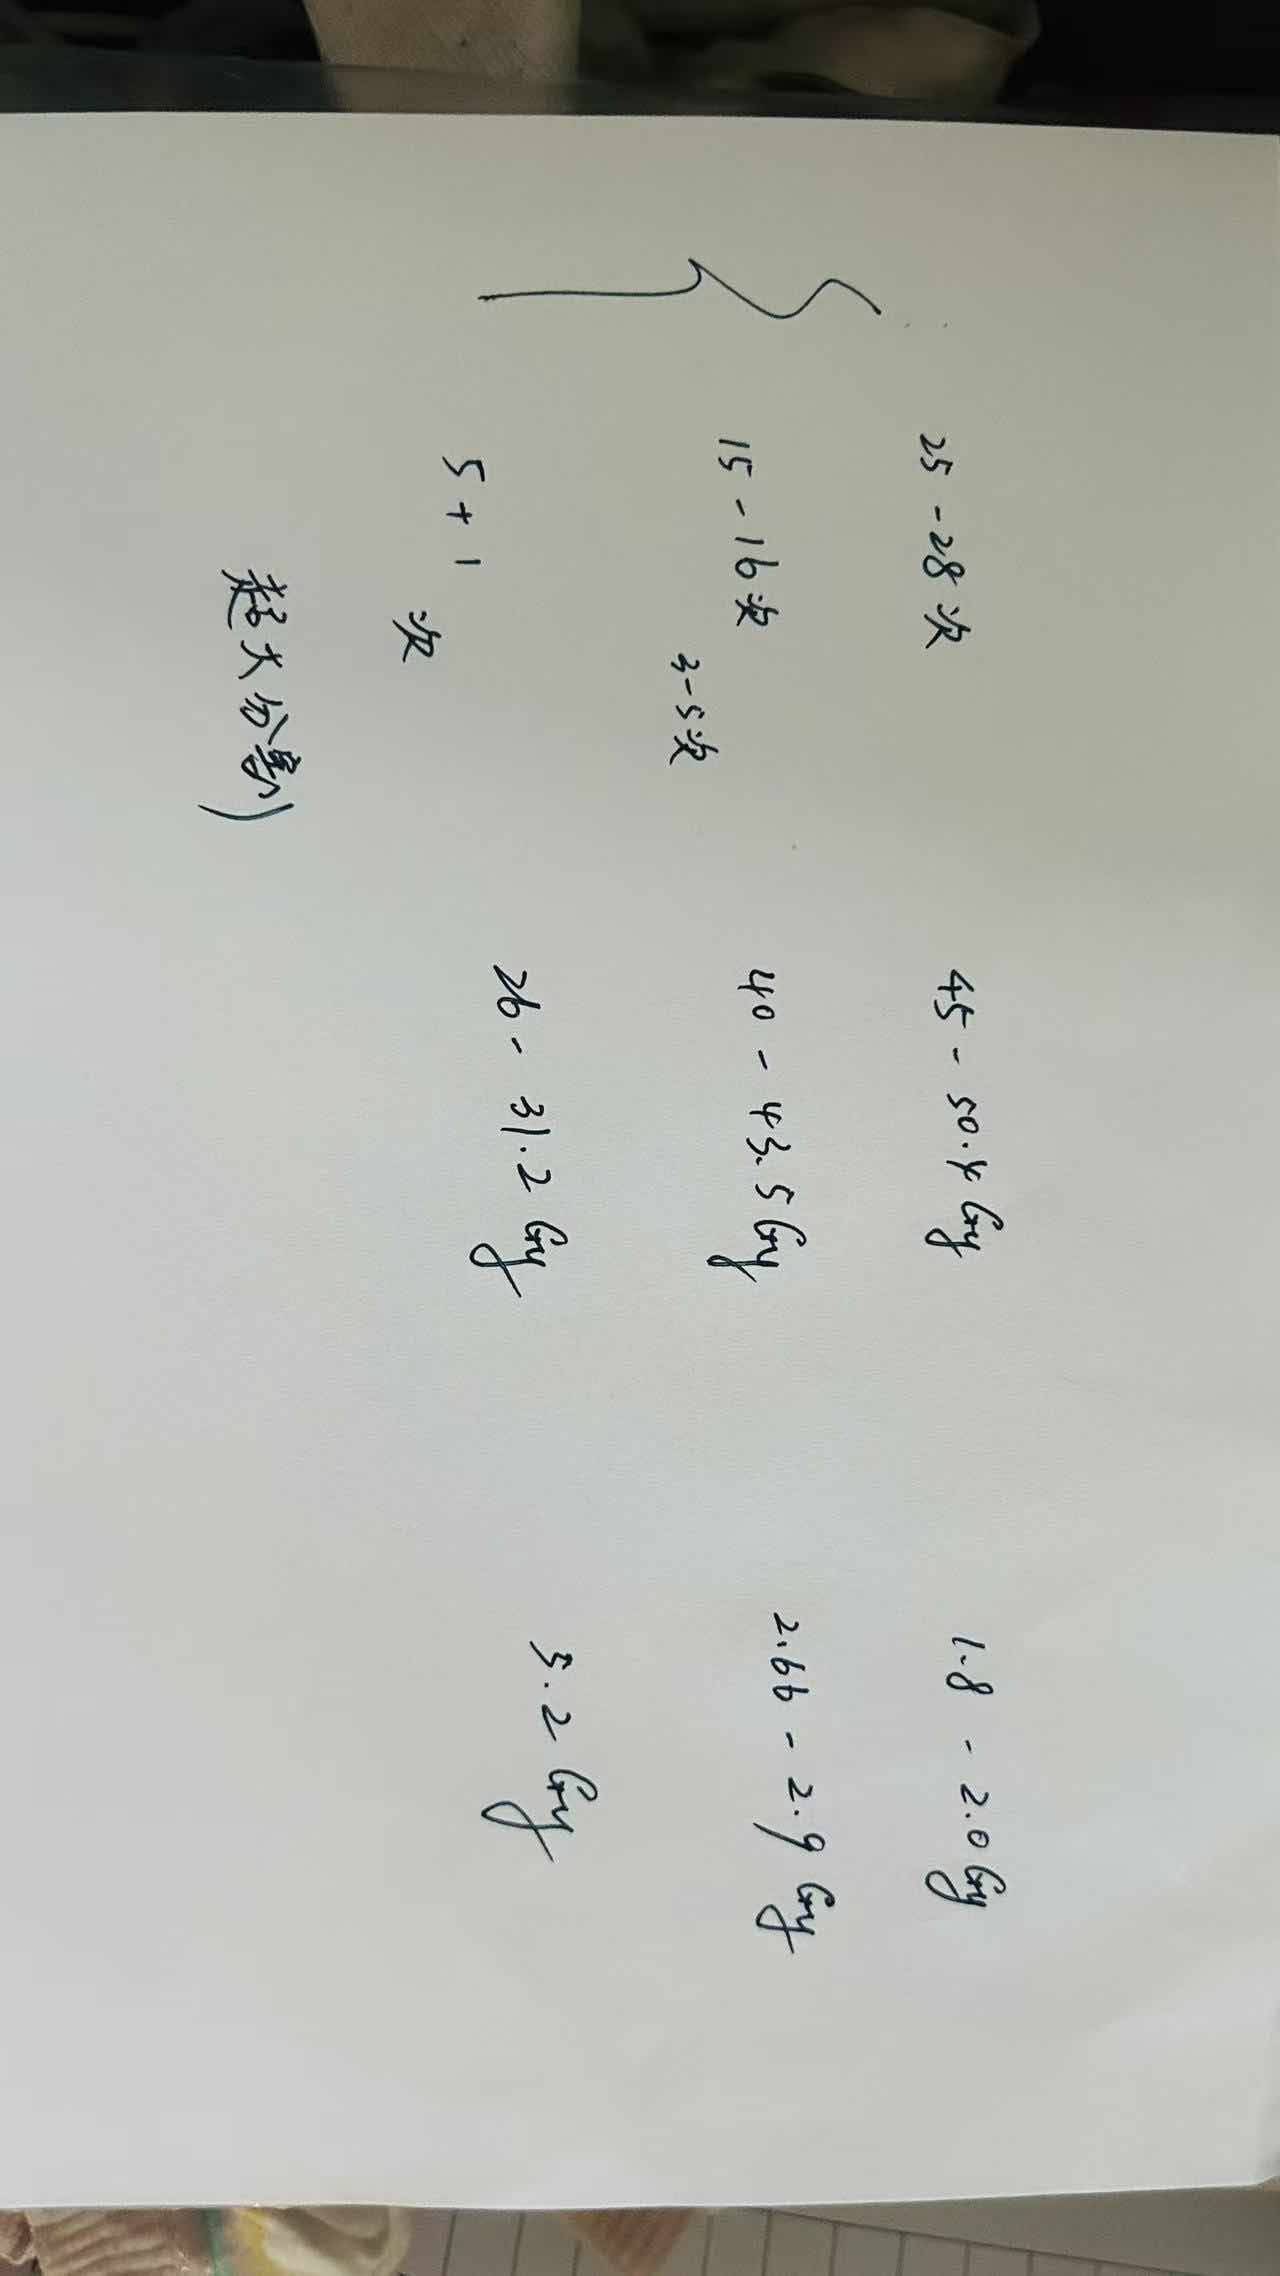 25-28次 45-50.4Gy 1.8-2.0Gy
15-16次 40-43.5Gy 2.66-2.9Gy
3-5次
5+1次 26-31.2Gy 5.2Gy
超大分割)